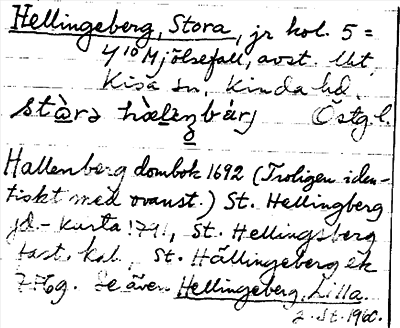 Hellingeberg, Stora, jr kol. 5 =
4¹⁰ Mjölsefall, avst. Ut,
Kisa sn, Kinda hd.
Östg.l.
Hallenberg dombok 1692 (Troligen iden-
tiskt med ovanst.) St. Hellingberg
jd-karta 1791, St. Hellingsberg
St. Hällingeberg ek
Se även Hellingeberg, Lilla.